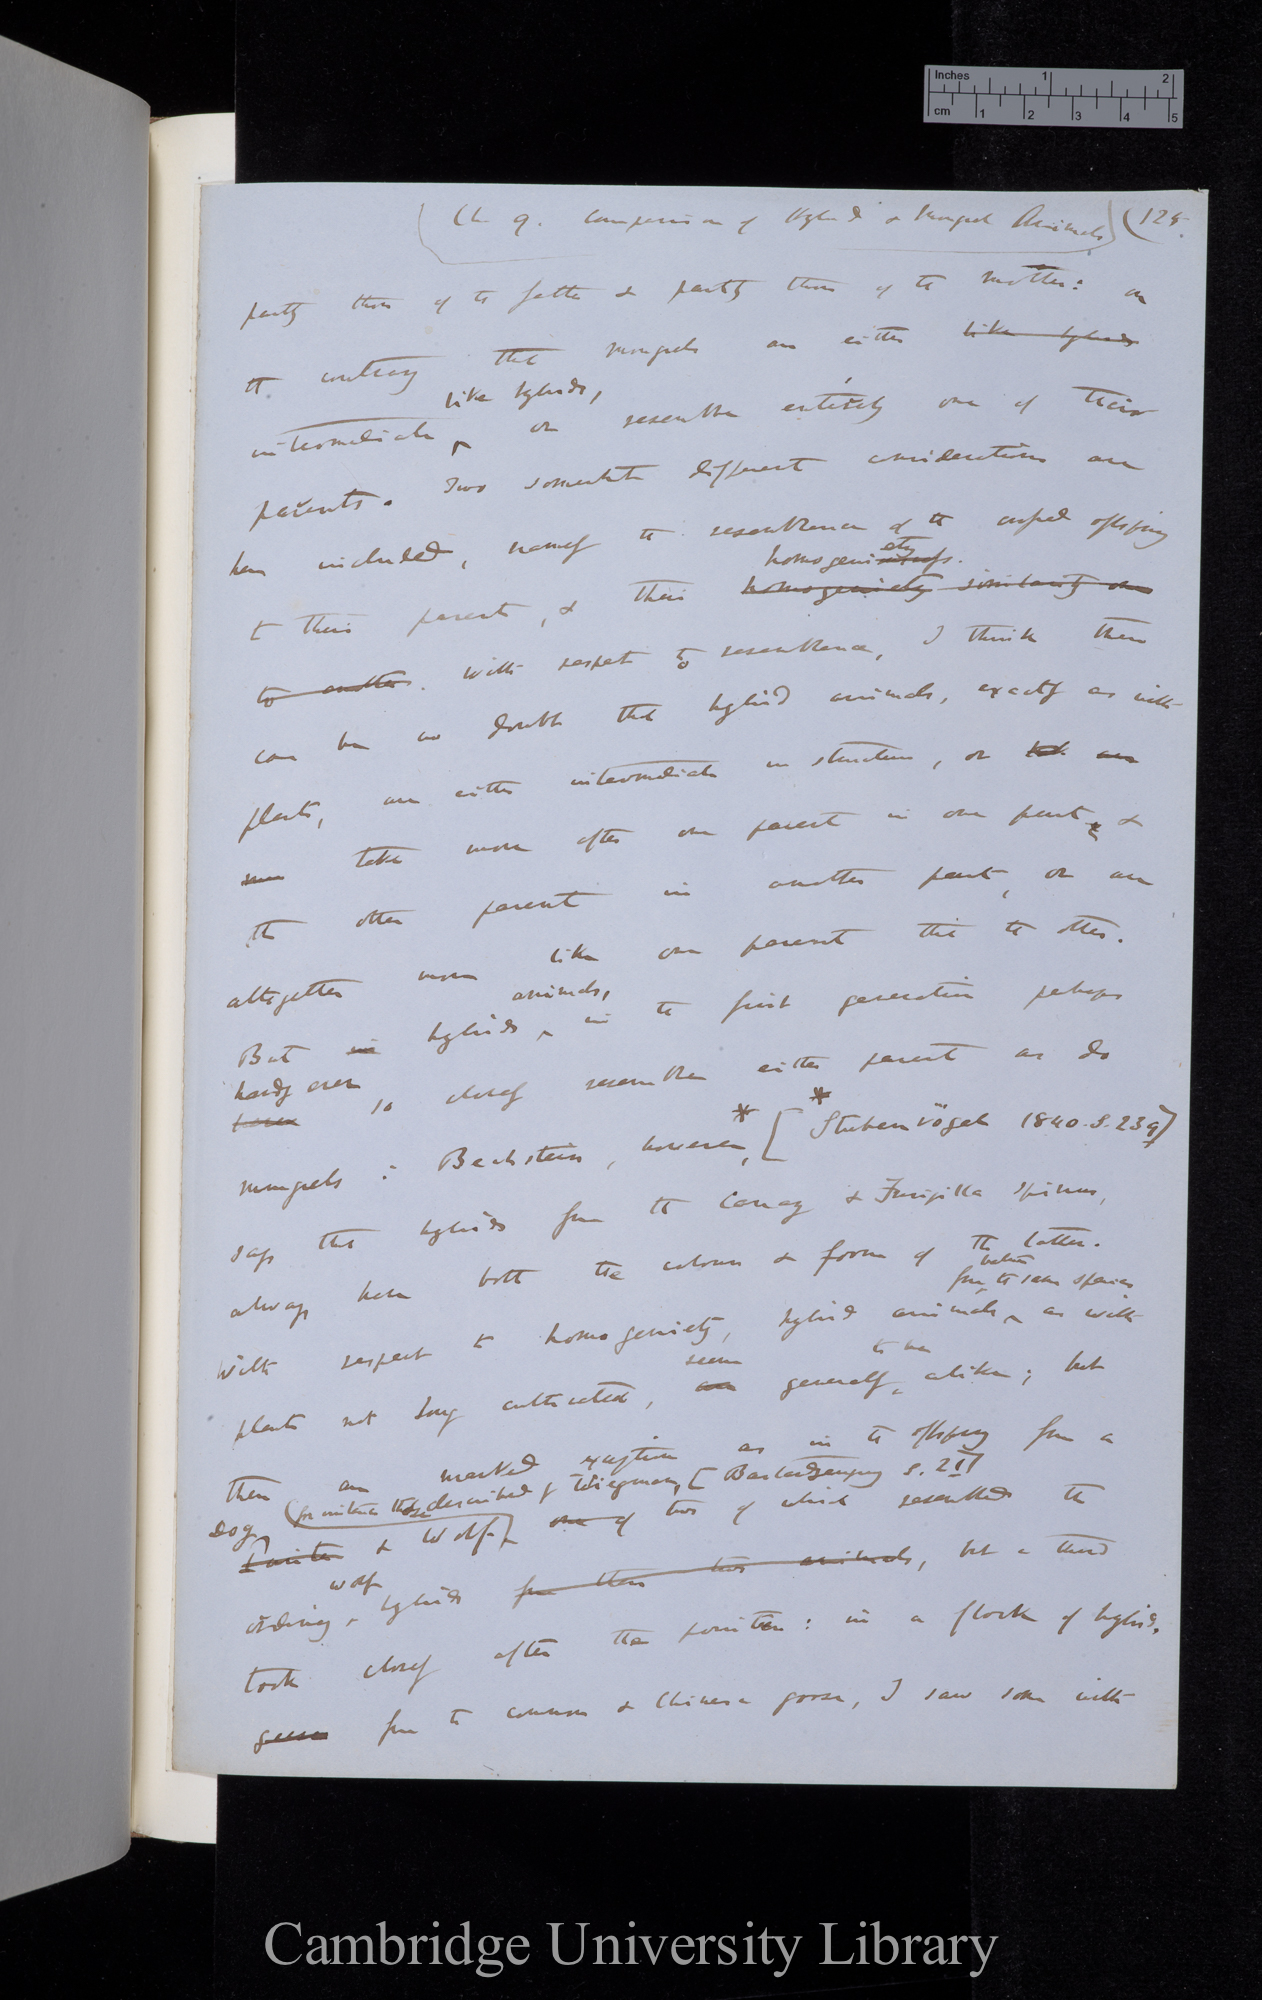 Inches 1 2
cm 1 2 3 4 5
(Ch 9. Comparison of Hybrid & Mongrel Animals) (125.
partly those of the father & partly those of the mother: on
the contrary that mongrels are either like hybrids
like hybrids,
intermediate or resemble entirely one of their
parents. Two somewhat different considerations are
here included, namely the resemblance of the crossed offspring
homogeniety.
to their parents, & their homogeniety similarity one
to another. With respect to resemblance, I think there
can be no doubt that hybrid animals, exactly as with
plants, are either intermediate in structure, or are
take more after one parent in one part, &
the other parent in another part, or are
altogether more like one parent than the other.
animals,
But in hybrids, in the first generation perhaps
hardly ever
so closely resemble either parent as do
mongrels: Bechstein, however,* [* Stubenvögel 1840. S. 239]
says that hybrids from the Canary & Fringilla spinus,
always have both the colour & form of the latter.
from between the same species
With respect to homogeniety, hybrid animals as with
seem to be
plants not long cultivated, are generally alike; but
there are marked exceptions as in the offspring from a
(for instance those described by Wiegmann, [Bastardzeugung S. 21]
dog
Pointer & Wolf) one of two of which resembled the
wolf
ordinary hybrids from these two animals, but a third
took closely after the pointer: in a flock of hybrids,
geese from the common & Chinese goose, I saw some with
Cambridge University Library